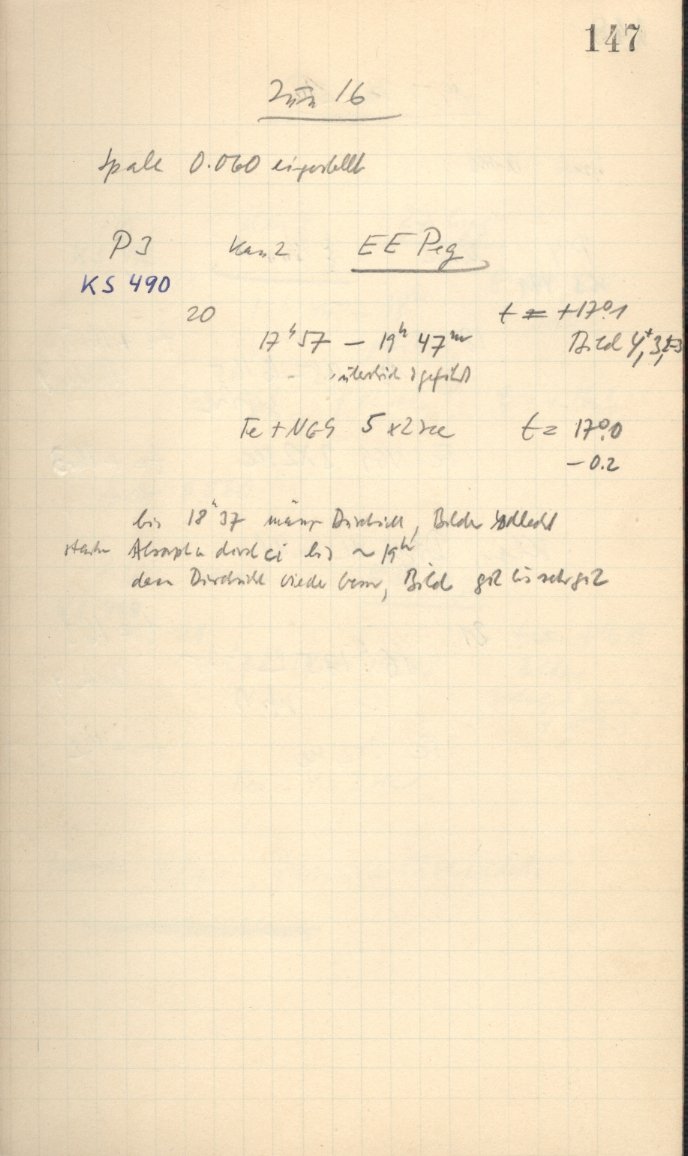 147
Juni 16
Spalt 0.060 eingestellt
P3 Kam 2 EE Peg
KS 490
20 t = +17°.1
17h 57 – 19h 47m Bild 4+, 3, +3
Fe + NGS 5 x 2 sec t = 17°.0
-0.2
bis 18h 37 Durchsicht, Bilder schlecht
starke Absorption durch ci bis ~ 19h
dann Durchsicht wieder besser, Bild gut bis sehr gut